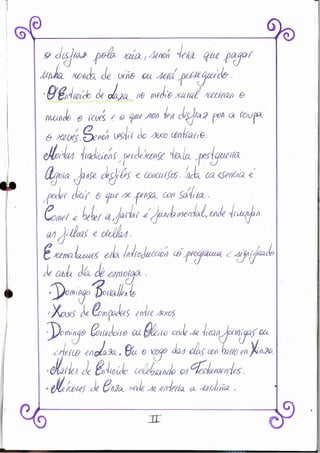 o disfraz pola rúa, senón tería que pagar
unha ronda de viño ou será perseguido.
· O Entroido de Laza, no medio rural recrean o
mundo o revés e o que non ten disfraz pon a roupa
o revés. Senón vestir do sexo contrario.
Moitas tradicións perdéronse trala postguerra.
Agora fanse desfiles e concursos. Inda ca esencia é
poder decir o que se pensa con sátira.
Comer e beber a fartar é fundamental, onde triunfan
as filloas e orellas.
E rematamos esta introducción có programa e significado
de cada día de esmorga.
· Domingo Borralleiro
· Xoves de Compadres entre sexos
· Domingo Corredoiro ou Oleiro onde se tiran formigas ou
cheico en Laza. Ou o xogo das olas con barro en Xinzo.
· Martes de Entroido celebrando os Testamentos.
· Mércores de Cinza onde se enterra a sardiña.
II